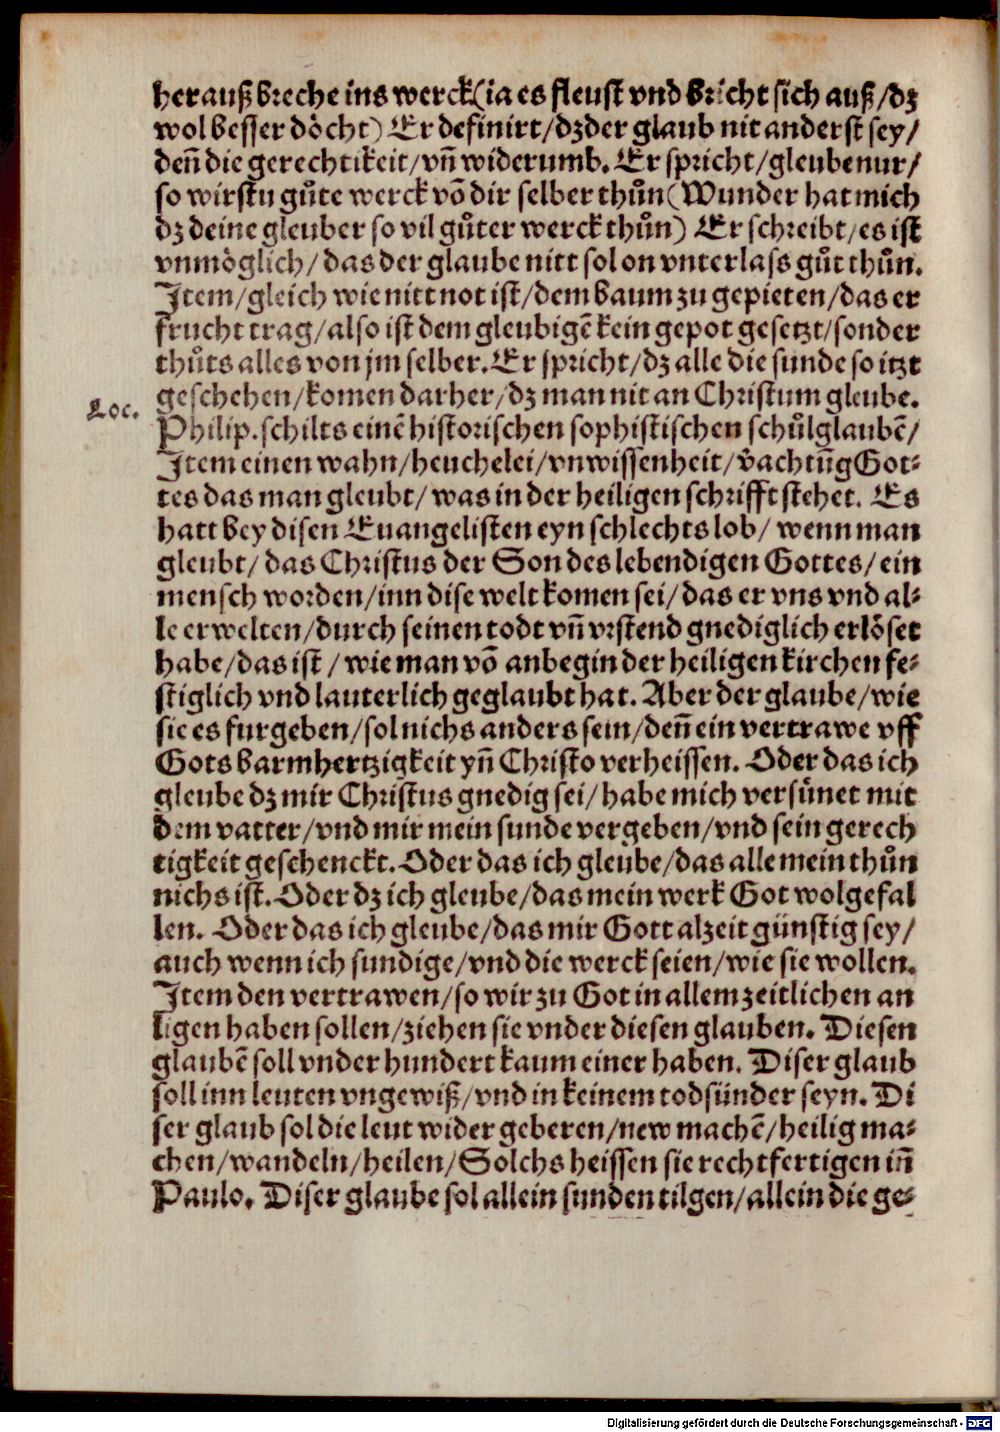 herauß breche ins werck (ia es fleust vnd bricht sich auß / dz
wol besser döcht) Er definirt / dz der glaub nit anderst sey /
deñ die gerechtikeit / vñ widerumb. Er spricht / gleube nur /
so wirstu gůte werck võ dir selber thůn (Wunder hat mich
dz deine gleuber so vil gůter werck thůn) Er schreibt / es ist
vnmöglich / das der glaube nitt sol on vnterlass gůt thůn.
Item / gleich wie nitt not ist / dem baum zu gepieten / das er
frucht trag / also ist dem gleubigẽ kein gepot gesetzt / sonder
thůts alles von jm selber. Er spricht / dz alle die sunde so itzt
geschehen / komen darher / dz man nit an Christum gleube.
Loc.
Philip. schilts einẽ historischen sophistischen schůlglaubẽ /
Item einen wahn / heuchelei / vnwissenheit / v̄achtũg Got⸗
tes das man gleubt / was in der heiligen schrifft stehet. Es
hatt bey disen Euangelisten eyn schlechts lob / wenn man
gleubt / das Christus der Son des lebendigen Gottes / ein
mensch worden / inn dise welt komen sei / das er vns vnd al⸗
le erwelten / durch seinen todt vñ vrstend gnediglich erlöset
habe / das ist / wie man võ anbegin der heiligen kirchen fe⸗
stiglich vnd lauterlich geglaubt hat. Aber der glaube / wie
sie es furgeben / sol nichs anders sein / deñ ein vertrawe vff
Gots barmhertzigkeit yñ Christo verheissen. Oder das ich
gleube dz mir Christus gnedig sei / habe mich versůnet mit
dem vatter / vnd mir mein sunde vergeben / vnd sein gerech
tigkeit geschenckt. Oder das ich gleube / das alle mein thůn
nichs ist. Oder dz ich gleube / das mein werk Got wolgefal
len. Oder das ich gleube / das mir Gott alzeit günstig sey /
auch wenn ich sundige / vnd die werck seien / wie sie wollen.
Item den vertrawen / so wir zu Got in allem zeitlichen an
ligen haben sollen / ziehen sie vnder diesen glauben. Diesen
glaubẽ soll vnder hundert kaum einer haben. Diser glaub
soll inn leuten vngewiß / vnd in keinem todsünder seyn. Di
ser glaub sol die leut wider geberen / new machẽ / heilig ma⸗
chen / wandeln / heilen / Solchs heissen sie rechtfertigen iñ
Paulo. Diser glaube sol allein sunden tilgen / allein die ge⸗
Digitalisierung gefördert durch die Deutsche Forschungsgemeinschaft - DFG